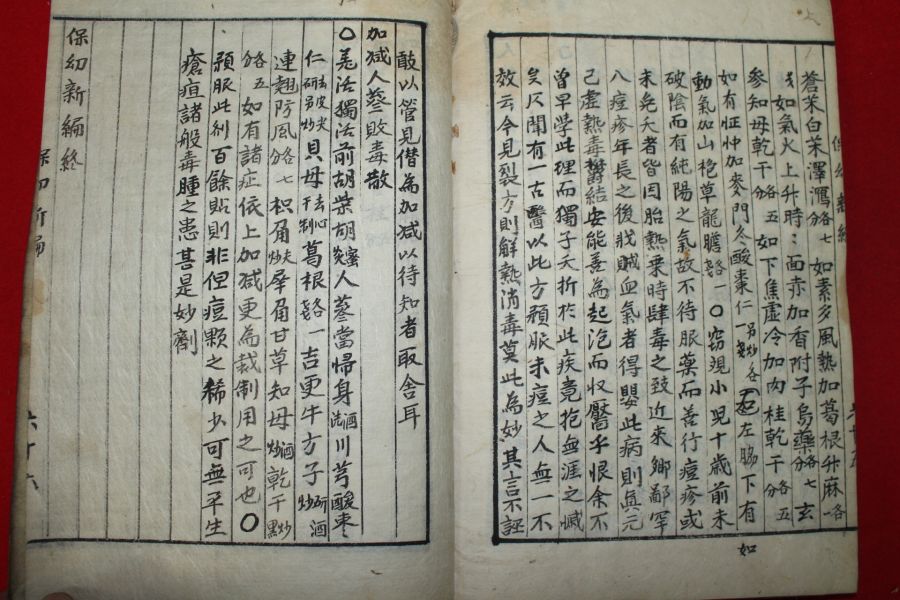 蒼朮白朮澤瀉各七分如素多風熱加葛根升麻各一
戔如氣火上升時時面赤加香附子烏藥各七分玄
參知母乾干各五分如下焦虛冷加肉桂乾干各五分
如有怔忡加麥門冬酸棗仁炒各一戔左脇下有
動氣加山梔草龍膽各一戔〇窃覌小兒十歲前未
破陰而有純陽之氣故不待服藥而善行痘疹或
未免夭者皆因胎熱乘時肆毒之致近來鄉鄙罕
八痘疹年長之後戕賊血氣者得嬰此病則真元
已虛熱毒鬱結安能善為起泡而収靨乎恨余不
曾早學此理而獨子夭折於此疾竟抱無涯之慽
矣仄聞有一古醫以此方預服未痘之人無一不
效云今見製方則解熱消毒莫此為妙其言不誣
如
敢以管見僭為加减以待知者取舍耳
加减人蔘敗毒散
〇羌活獨活前胡柴胡人蔘當帰身酒洗川芎酸棗
仁貝母去心干制葛根各一戔吉更牛方子酒炒研
連翹防風各七分枳角夫炒犀角甘草知母酒炒乾干炒黑
各五分如有諸症依上加减更為裁制用之可也〇
預服此剂百餘貼則非但痘顆之稀少可無平生
瘡疽諸般毒腫之患甚是妙劑
保幼新編終
保幼新編
六十六